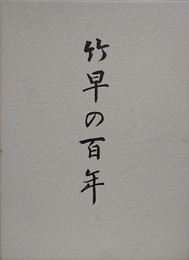 竹早の百年